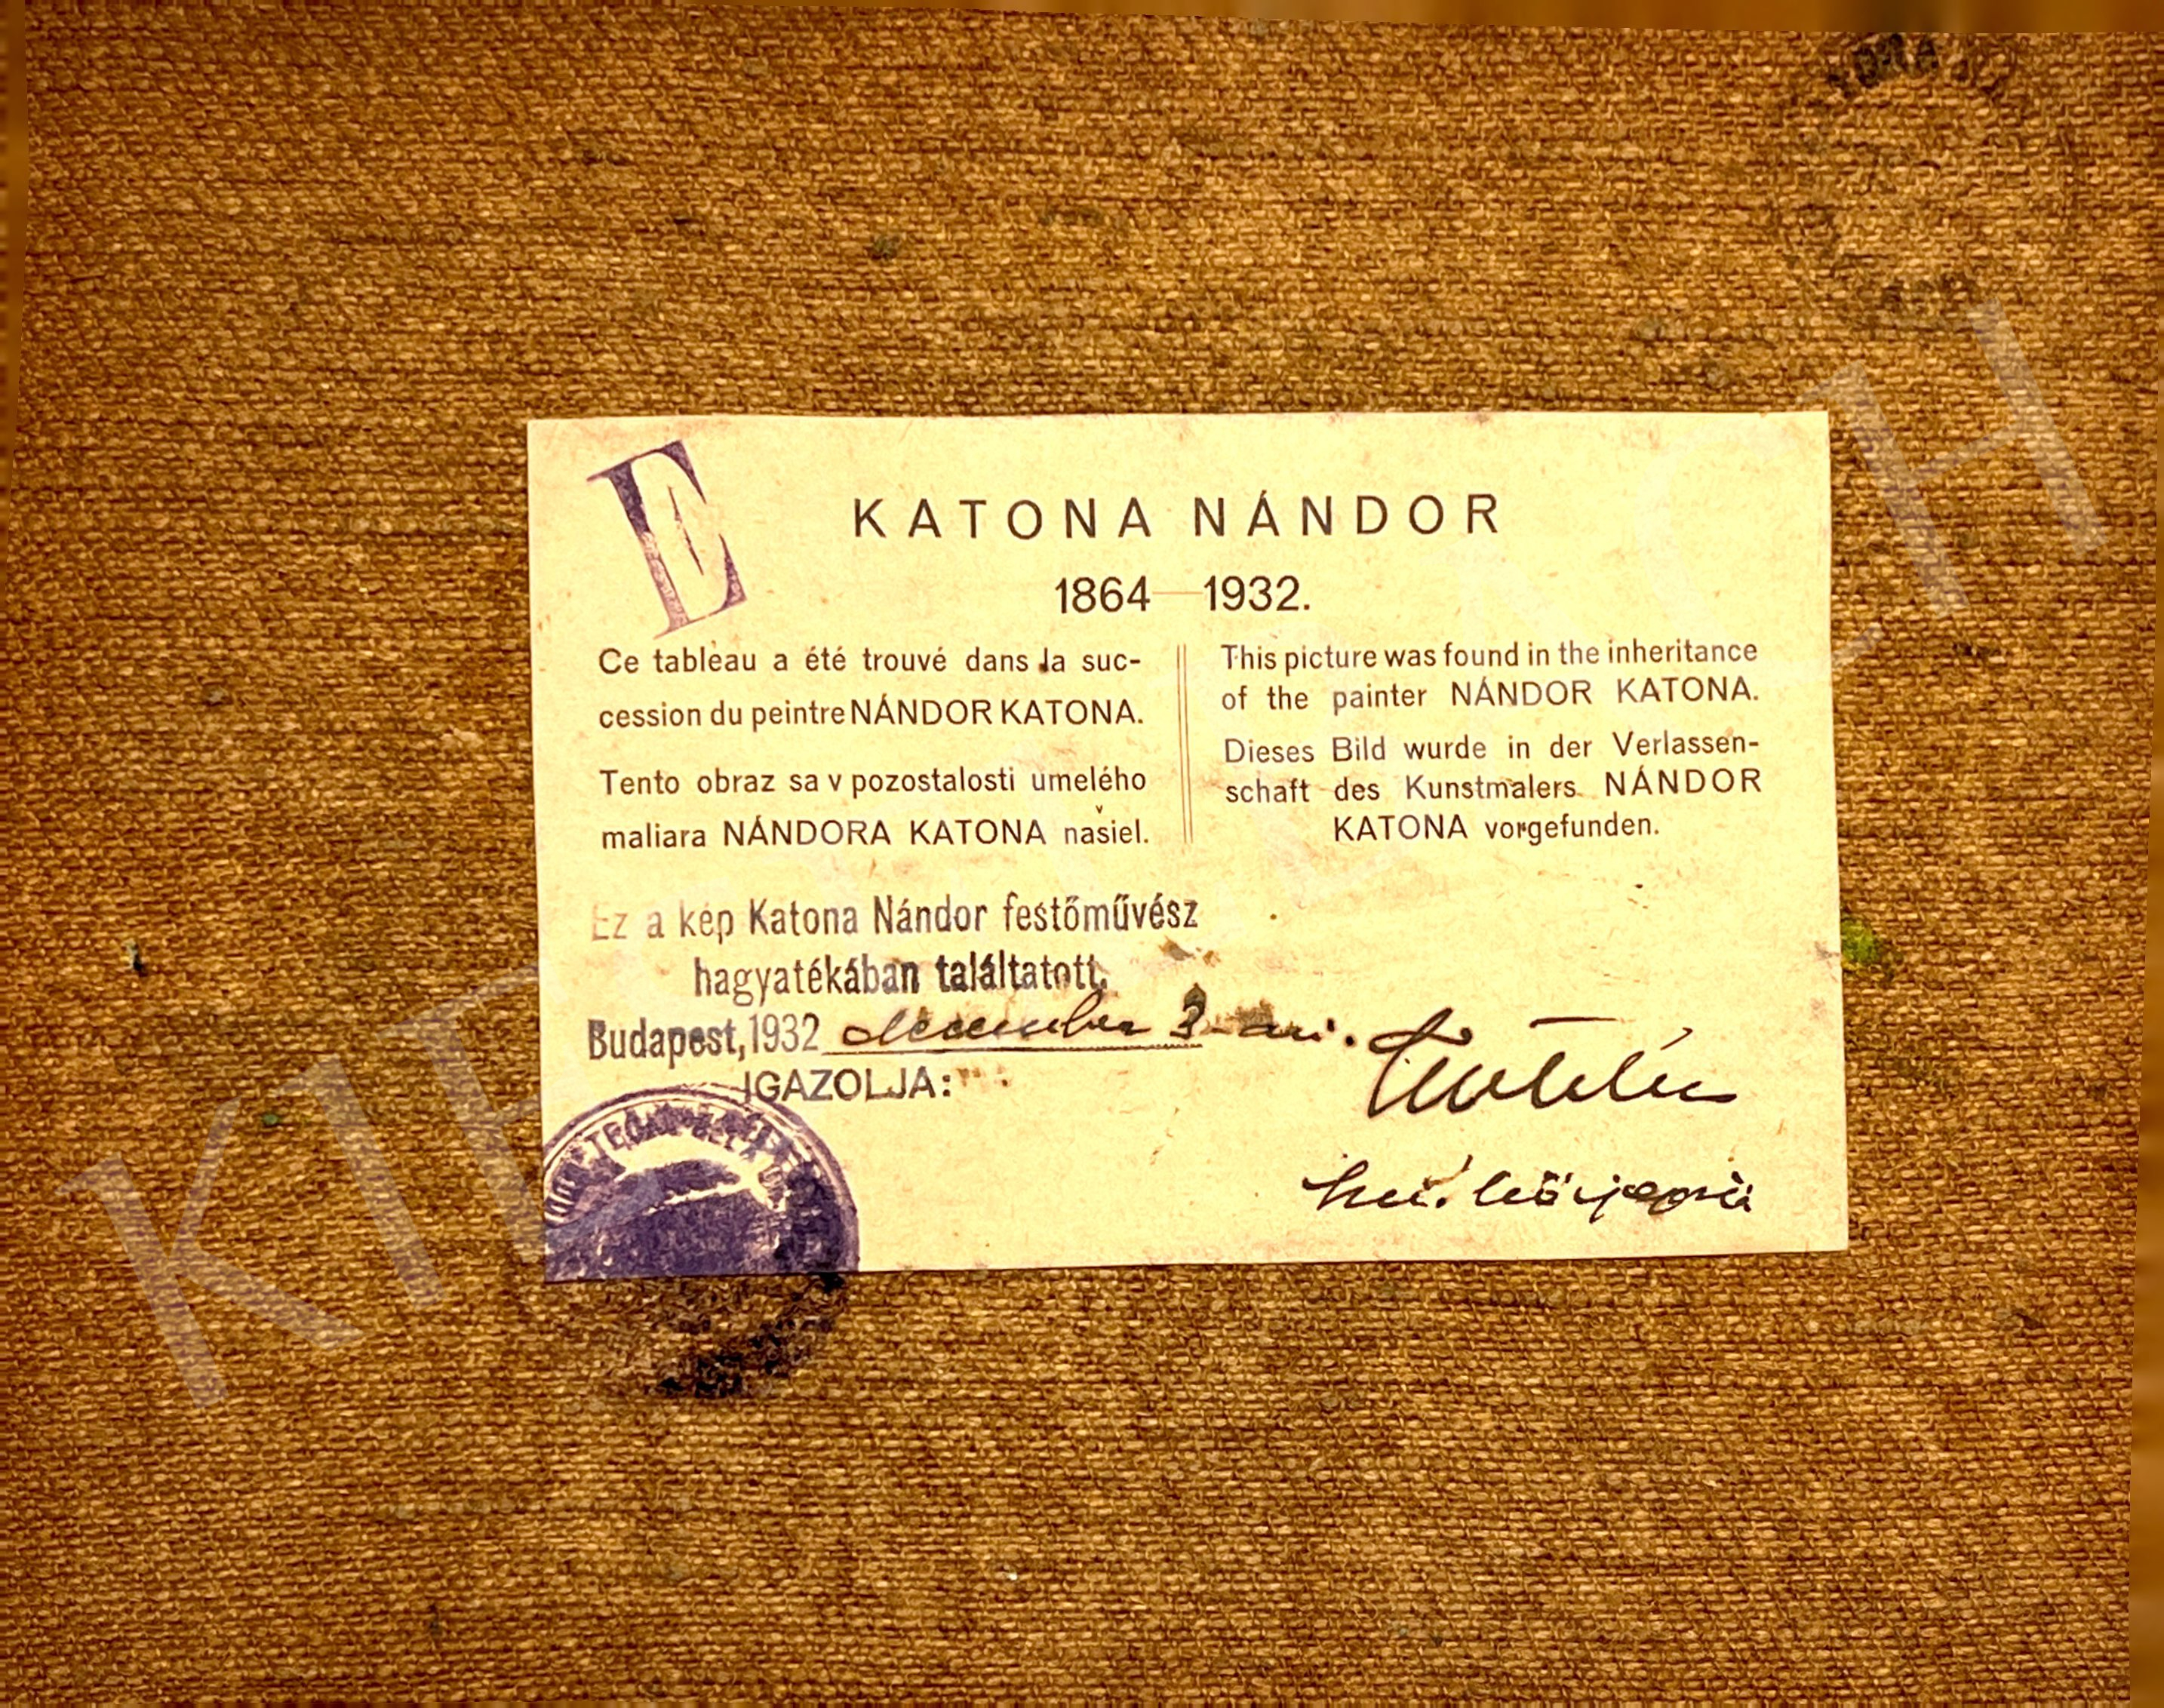 E
KATONA NÁNDOR
1864—1932.
Ce tableau a été trouvé dans la suc-
cession du peintre NÁNDOR KATONA.
Tento obraz sa v pozostalosti umelého
maliara NÁNDORA KATONA našiel.
This picture was found in the inheritance
of the painter NÁNDOR KATONA.
Dieses Bild wurde in der Verlassen-
schaft des Kunstmalers NÁNDOR
KATONA vorgefunden.
Ez a kép Katona Nándor festőművész
hagyatékában találtatott.
Budapest, 1932 december 3-án.
IGAZOLJA:
kir. közjegyző